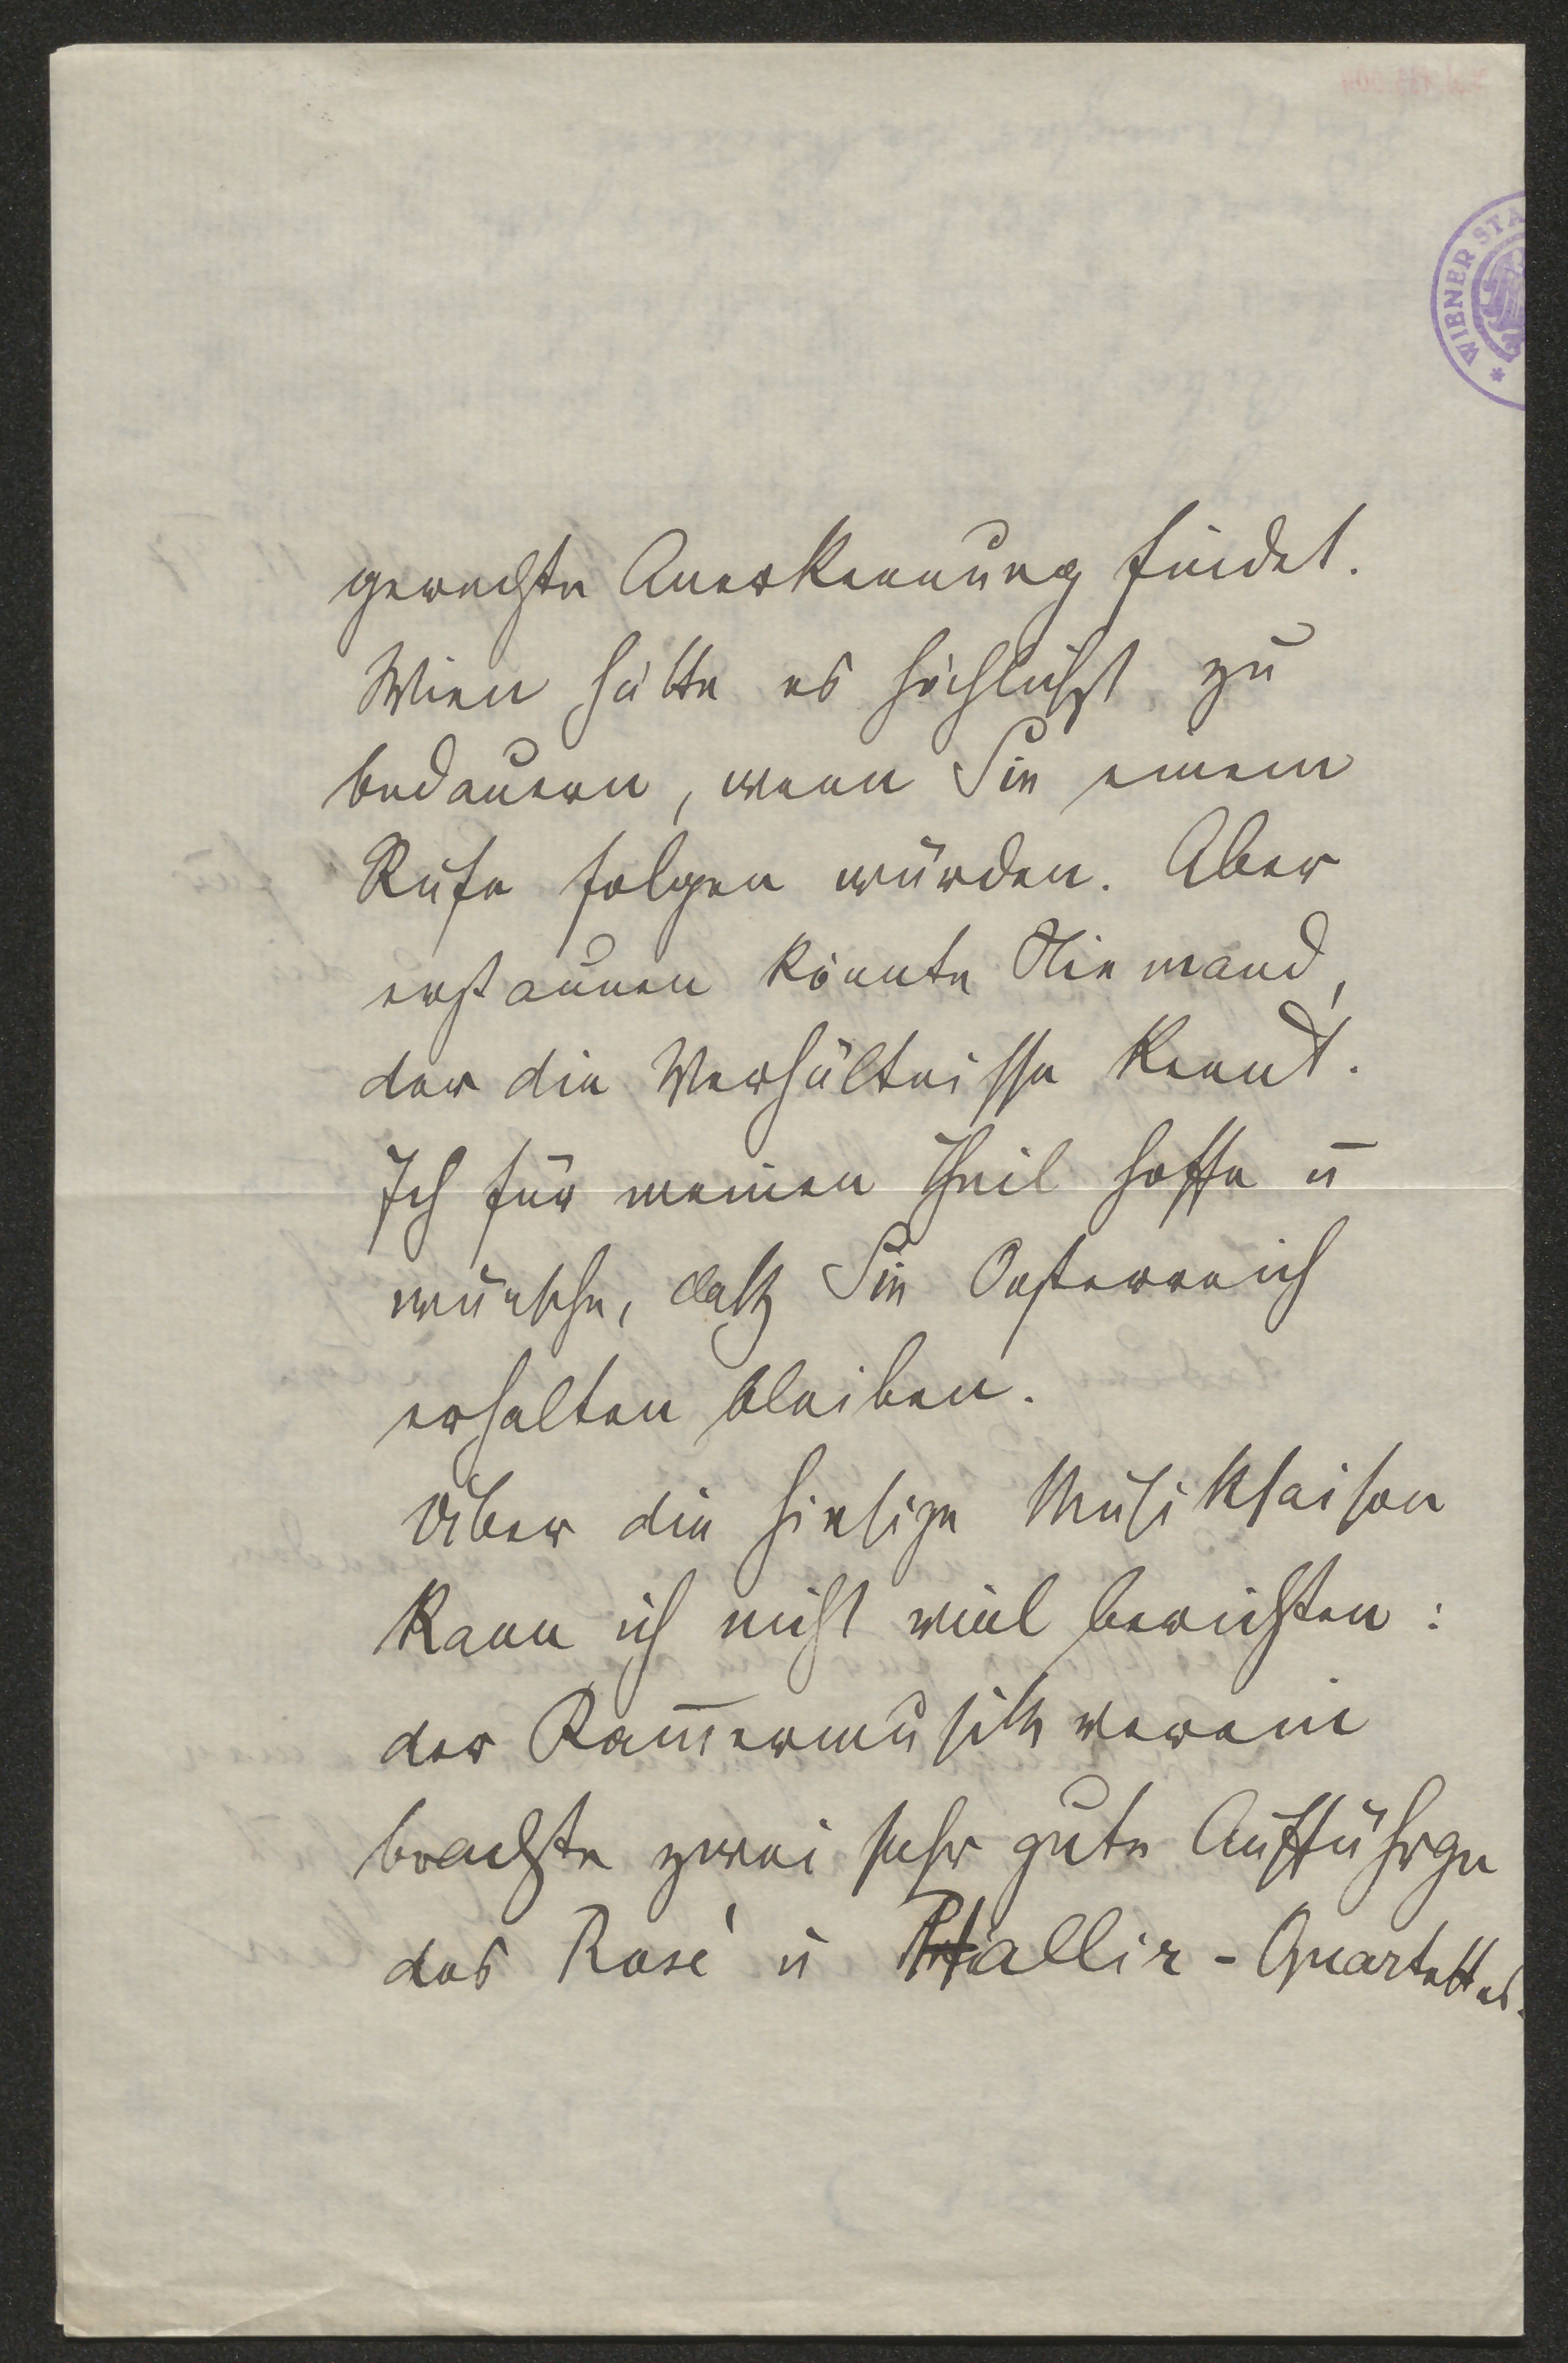 WIENER STA
gerechte Anerkennung findet.
Wien hätte es höchlichst zu
bedauern, wenn Sie einem
Rufe folgen würden. Aber
erstaunen könnte Niemand,
der die Verhältnisse kennt.
Ich für meinen Theil hoffe u
wünsche, daß Sie Oesterreich
erhalten bleiben.
Über die hiesige Musiksaison
kann ich nicht viel berichten:
der Kam̅ermusikverein
brachte zwei sehr gute Aufführgen
des Rosé u Hallir-Quartettes.